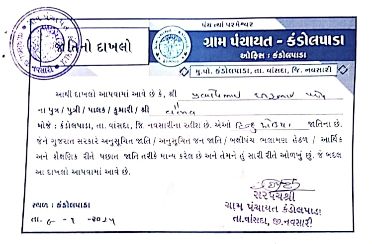 પંચ ત્યાં પરમેશ્વર
જાતિનો દાખલો
ગ્રામ પંચાયત - કંડોલપાડા
ઓફિસ : કંડોલપાડા
મુ.પો. કંડોલપાડા, તા. વાંસદા, જિ. નવસારી
આથી દાખલો આપવામાં આવે છે કે, શ્રી
ના પુત્ર / પુત્રી / પાલક / કુમારી / શ્રી
મોજે : કંડોલપાડા, તા. વાંસદા, જિ. નવસારીના રહીશ છે. એઓ હિન્દુ જાતિના છે.
જેને ગુજરાત સરકારે અનુસૂચિત જાતિ / અનુસૂચિત જન જાતિ / બક્ષીપંચ ભલામણ હેઠળ / આર્થિક
અને શૈક્ષણિક રીતે પછાત જાતિ તરીકે માન્ય કરેલ છે અને તેમને હું સારી રીતે ઓળખું છું. જે બદલ
આ દાખલો આપવામાં આવે છે.
સ્થળ : કંડોલપાડા
તા.
સરપંચશ્રી
ગ્રામ પંચાયત કંડોલપાડા
તા.વાંસદા, જી.નવસારી